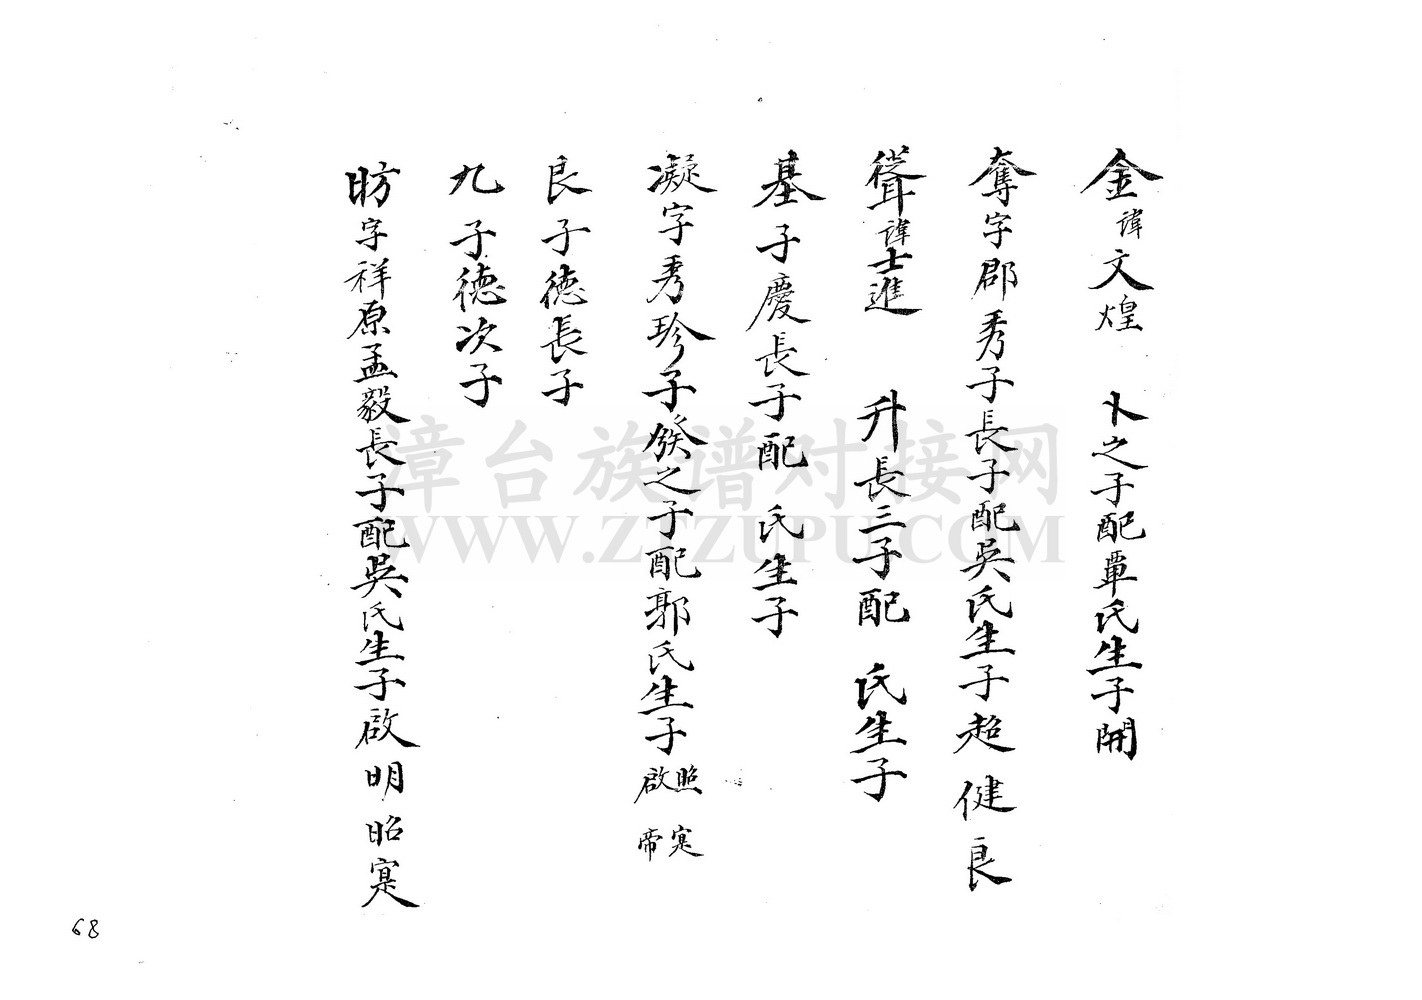 金諱文煌 卜之子配覃氏生子開
奪字郡秀子長子配吳氏生子超 健 良
聳諱士進 升長三子配 氏生子
基子慶長子配 氏生子
凝字秀珍子發之子配郭氏生子照寔啟帝
良子德長子
九子德次子
昉字祥原孟毅長子配吳氏生子啟 明 昭 寔
漳台族谱对接网
WWW.ZTZUPU.COM
68